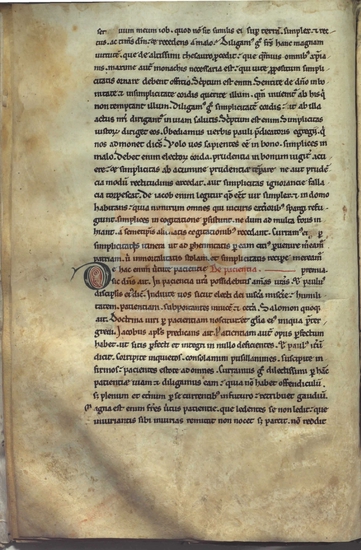 ser uum meum iob. quod nō sit similis ei sup̄ terrā. simplex ⁊ rec
tus. ac timēs dm̄. ⁊ recedens a malo. Diligam᷒ g̊ frs̄ hanc magnam
uirtutē. que de altimi thesauro
ms. maxime aut̄ monachis necessaria est. qui uite
citatis ornare debent officio. Scriptum est enim. Sentite de dn̄o in bo
nitate. ⁊ in simplicitate cordis querite illum. qm̄ inuenit᷒ ab his q̄
non temptant illum. Diligam᷒ g̊ simplicitatē cordis. ut ab illa
actus nr̄i dirigant᷒ in uiam salutis. Scriptum est enim. Simplicitas
iustoꝝ diriget eos. Obediamus uerbis pauli p̄dicatoris egregii. q̄
nos admonet dicēs. Volo uos sapientes eē in bono. simplices in
malo. Debet enim electoꝝ corda prudentia in bonum uigere act
ere. ⁊ simplicitas ab acumine prudentie ne aut pruden
cia modū rectitudinis excedat. aut simplicitas ignorancie falla
ta torpescat. De iacob enim legit᷒ qd̄ eēt uir simplex. ⁊ in domo
habitaret.
giunt. simplices in cogitatione ne dum ad multa foris in
hiant. a semetipsis alienatis cogitationib᷒ recedant. Curram᷒ g̊ p
simplicitatis itinera
patriam. ū immortalitatis stolam. ex simplicitate recipe meream᷒.
O hac enim uirtute pacientie De paciencia. premia
sic dn̄s ait. In paciencia ur̄a possidebitis aīmas ur̄as. ⁊ pauł᷒
discipłis ei᷒ dic̄. Induite uos sicut electi dei uiscera mīe. humili
tatem. pacientiam. supportantes inuicē. ⁊ cetā. ⁊ Salomon quoq̄
ait. Doctrina uiri p̄ pacientiam noscitur. ⁊ głia ei᷒ iniqua p̄ter
gredi. Jacobus apłs predicans ait. Patientiam aut̄ opus ꝑfectum
habet. ut sitis ꝑfecti ⁊ integri in nullo deficientes. ⁊ pauł᷒ itē
dicit. Corripite inquietos. consolamini pusillanimes. suscipite in
firmos. pacientes estote ad omnes. Curramus g̊ dilectissimi p̄ hāc
pacientie uiam. ⁊ diligamus eam. quia non habet offendiculū
si plenum ⁊ eternum p̄ se currentib᷒ in futuro retribuet gaudiū.
Magna est enim frēs uirtus pacientie. que ledentes se non ledit. que
iniuriantis sibi iniurias remittit. non nocet si parcit. nō reddit